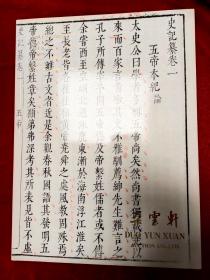 史記纂卷一
五帝本紀論
太史公曰學
帝尚矣然尚書獨載堯以
來而百家言
不雅馴薦紳先生難言之
孔子所傳宰
帝繫姓儒者或不傳
余嘗西至
東漸於海南浮江淮矣
至長老皆各
堯舜之處風敎固殊焉
總之不離古文者近是余觀春秋國語其發明五
帝德帝繫姓章矣顧弟弗深考其所表見皆不虛
史記纂卷一
五帝
雲軒
YUN XUAN